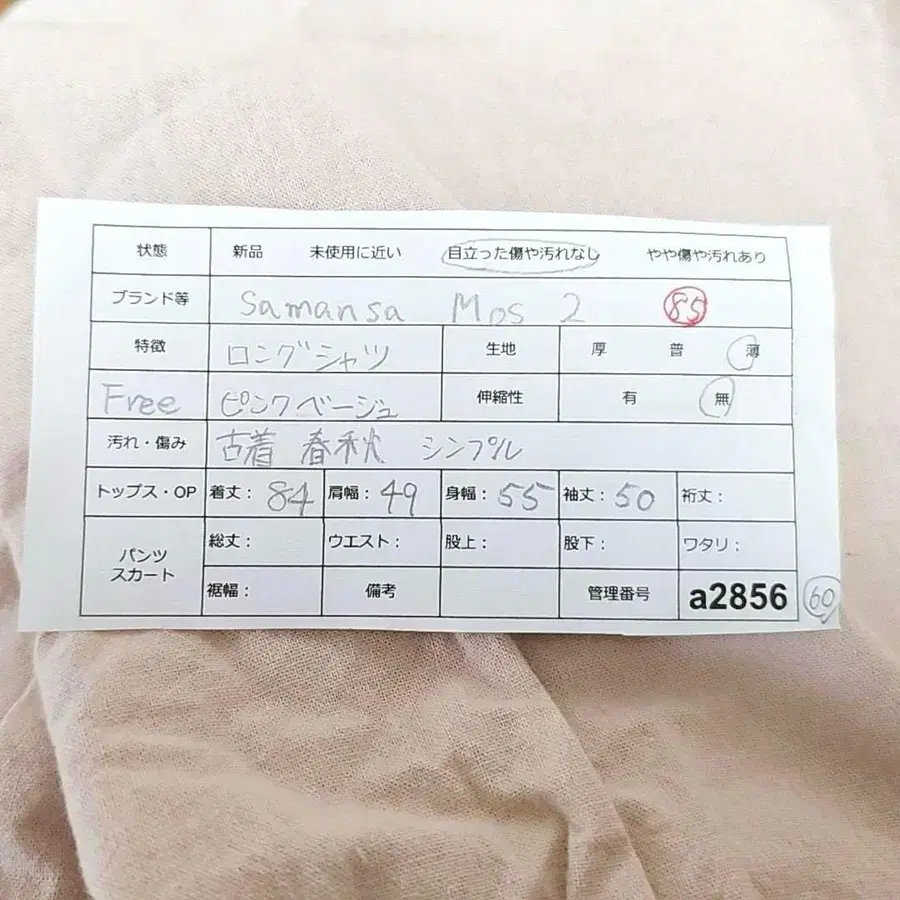 状態 新品 未使用に近い 目立った傷や汚れなし やや傷や汚れあり
ブランド等 Samansa Mos 2 85
特徴 ロングシャツ 生地 厚 普 薄
Free ピンクベージュ 伸縮性 有 無
汚れ・傷み 古着 春秋 シンプル
トップス・OP 着丈: 84 肩幅: 49 身幅: 55 袖丈: 50 裄丈:
パンツ スカート 総丈: ウエスト: 股上: 股下: ワタリ:
裾幅: 備考 管理番号 a2856 60